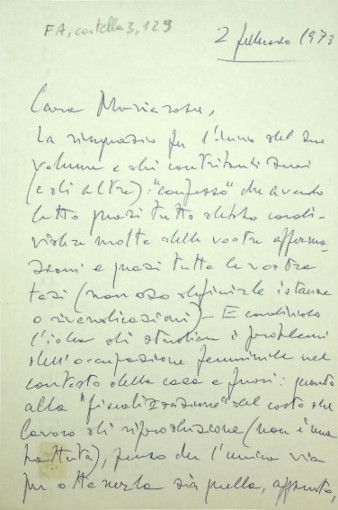 FA, cartella 3, 129
2 febbraio 1973
Cara Mariarosa,
La ringrazio per l'invio del suo
volume e dei contributi suoi
(e di altre): "confesso" che avendo
letto quasi tutto debbo condi-
videre molte delle vostre afferma-
zioni e quasi tutte le vostre
tesi (non oso definirle istanze
o rivendicazioni) - E condivido
l'idea di studiare i problemi
dell'occupazione femminile nel
contesto della casa e fuori: quanto
alla "fiscalizzazione" del costo del
lavoro di riproduzione (non è una
battuta), penso che l'unica via
per ottenerla sia quella, appunto,